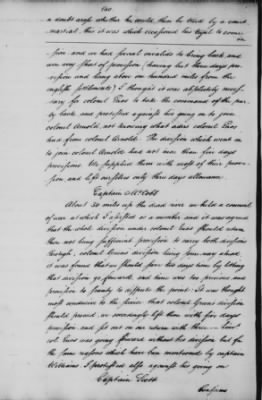 a doubt arose whether he could then be tried by a court
martial. this it was which occasioned his trial to come
on
sion, and we had several invalids to bring back and
were very short of provision (having but three days pro
vision and being above one hundred miles from the
english settlements) I thought it was absolutely neces
sary for colonel Enos to take the command of the par
ty back, and protested against his going on to join
colonel Arnold, not knowing what orders colonel Enos
had from colonel Arnold. The division which went on
to join colonel Arnold had not more than five days
provisions. We supplied them with most of their provi
sion, and left ourselves only three days allowance.
Captain McCobb
About 50 miles up the dead river we held a council
of war at which I assisted as a member and it was agreed
that the whole division under colonel Enos should return
there not being sufficient provision to carry both divisions
through; colonel Greens division being some way ahead,
it was found they should for two days time by letting
that division go forward, and time was too precious and
provision to scanty to dispute the point: It was thought
most conducive to the service that colonel Greens division
should proceed. we accordingly left them with five days
provision and set out on our return with three
col. Enos was going forward without his division but for
the same reasons which have been mentioned by captain
Williams I protested also against his going on
Captain Scott